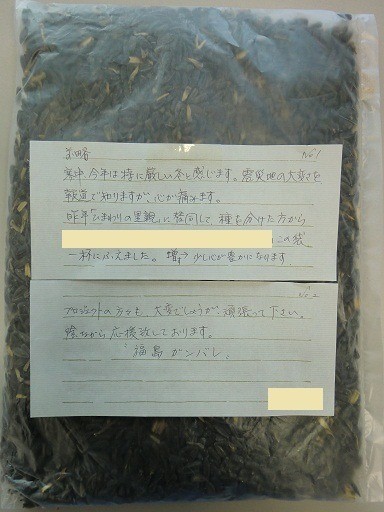 前略 No.1
寒中、今年は特に厳しい冬と感じます。震災地の大変さを
報道で知りますが、心が痛みます。
昨年「ひまわりの里親」に賛同して、種を分けた方から
この袋
一杯にふえました。増う少し心が豊かになります。
No.2
プロジェクトの方々も、大変でしょうが、頑張って下さい。
陰ながら応援致しております。
福島ガンバレ。